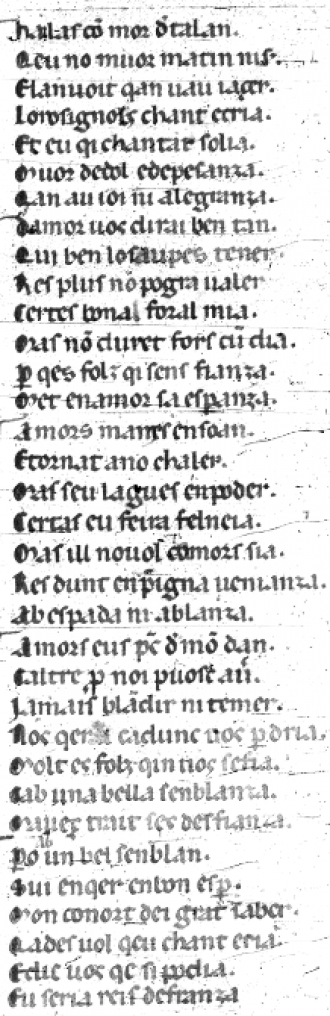 hailas cō mor d̄ talan.
Qeu no muor matin nisr.
Elanuoit qan uau iaçer.
Lorosignols chant ecria.
Et eu qi chantar solia.
Muor dedol edepesanza.
Qan au ioi ni alegranza.
Damor uos dirai ben tan.
Qui ben losaupes tener.
Res plus nō pogra ualer
Certes bona foral mia.
Mas nō duret fors cū dia.
p̱ qes folz qi sens fianza.
Met enamor sa esp̱anza.
Amors manes ensoan.
Etornat ano chaler.
Mas seu lagues enpoder.
Certas eu feira felneia.
Mas ill nouol comors sia.
Res dunt en p̄igna uenianza.
Ab espada ni ablanza.
Amors eus pc̄ d̄ mō dan.
Caltre p̱ noi puosc au̓.
Jamais blādir ni temer.
Nos qeria cadunc uos p̱dria.
Molt es folz qin uos sefia.
Cab una bella senblanza.
trait ses desfianza.
p̱o ab un bel senblan.
Sui enqer enbon esp̱.
Mon conort dei grat saber.
Cades uol qeu chant eria.
Edic uos qe si podia.
Eu seria reis defranza